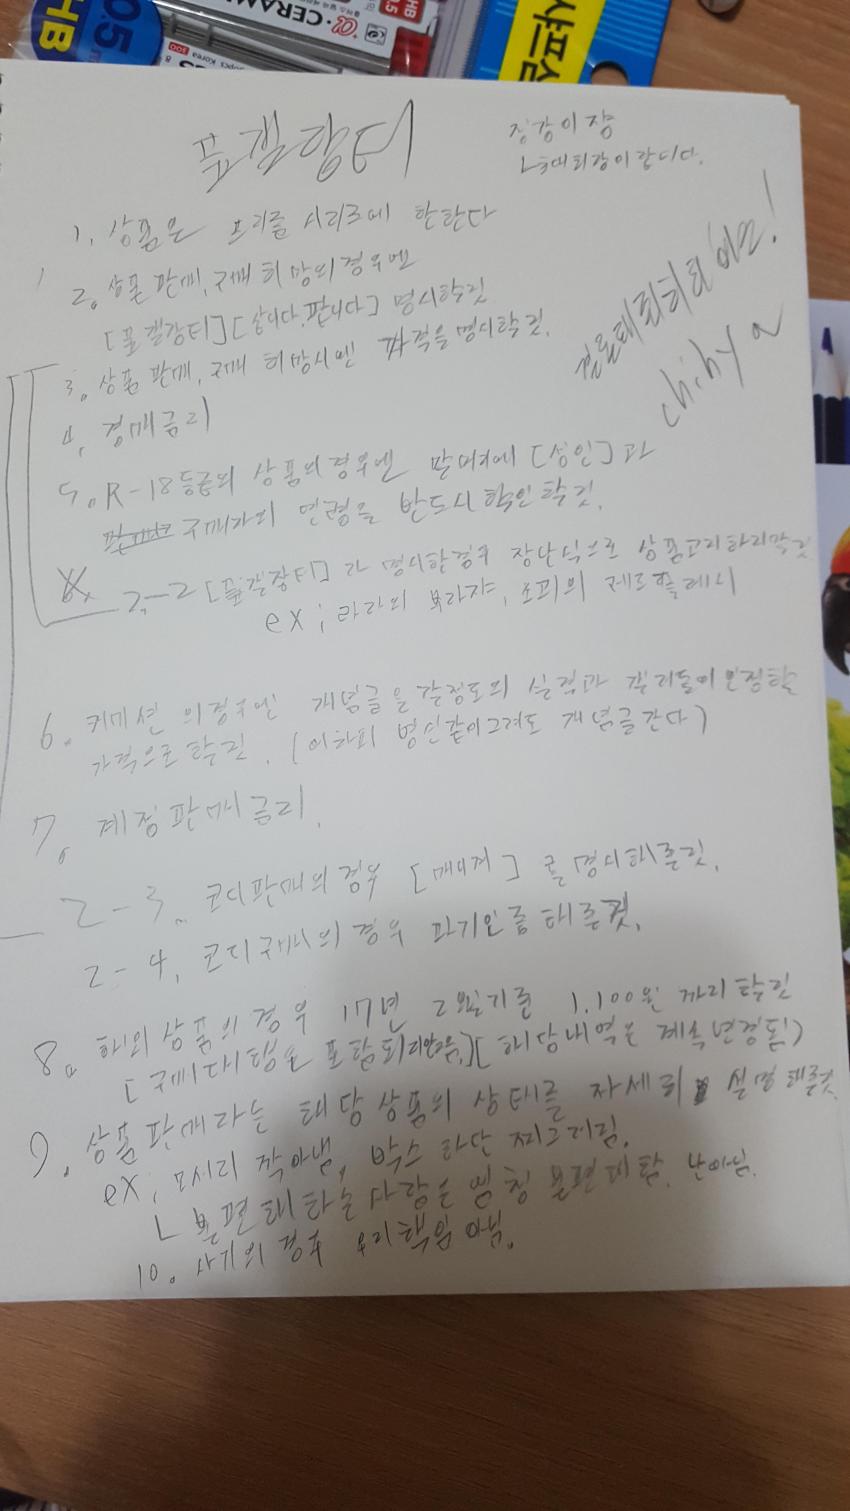 CERAM
HB
0.5
샤프심
풀갤장터
징강이 장
1. 상품은 프리큘 시리즈에 한한다
2. 상품 판매, 구매 희망의 경우엔
[풀갤장터][삽니다.팝니다] 명시할것
3. 상품 판매, 구매 희망시엔 가격을 명시할것.
chihya
4. 경매금지
5. R-18등급의 상품의 경우엔 말머리에 [성인]과
구매자의 연령을 반드시 확인할것.
2-2 [풀갤장터]라 명시한경우 장난식으로 상품고리하지말것
ex; 라라의 브라자, 소피의
6. 커미션 의경우엔 개념글을 갈정도의 실력과 갤러들이 인정할
가격으로 할것. (어차피 병신같이그려도 개념글간다)
7. 계정판매금지.
2-3. 코디판매의 경우 [매너게] 를 명시해줄것.
2-4. 코디구매의 경우 과기인증해줄것.
8. 해외상품의 경우 17년 2월기준 1,100원 까지할것
[구매대행은 포함되지않음.][해당내역은 계속변경됨)
9. 상품판매자는 해당 상품의 상태를 자세히 설명해줄것.
ex; 모서리 짝아냄, 박스 하단 찌그러짐.
ㄴ 불편해하는사람은 엄청 불편해함. 난아님.
10. 사기의 경우 우리책임 아님.